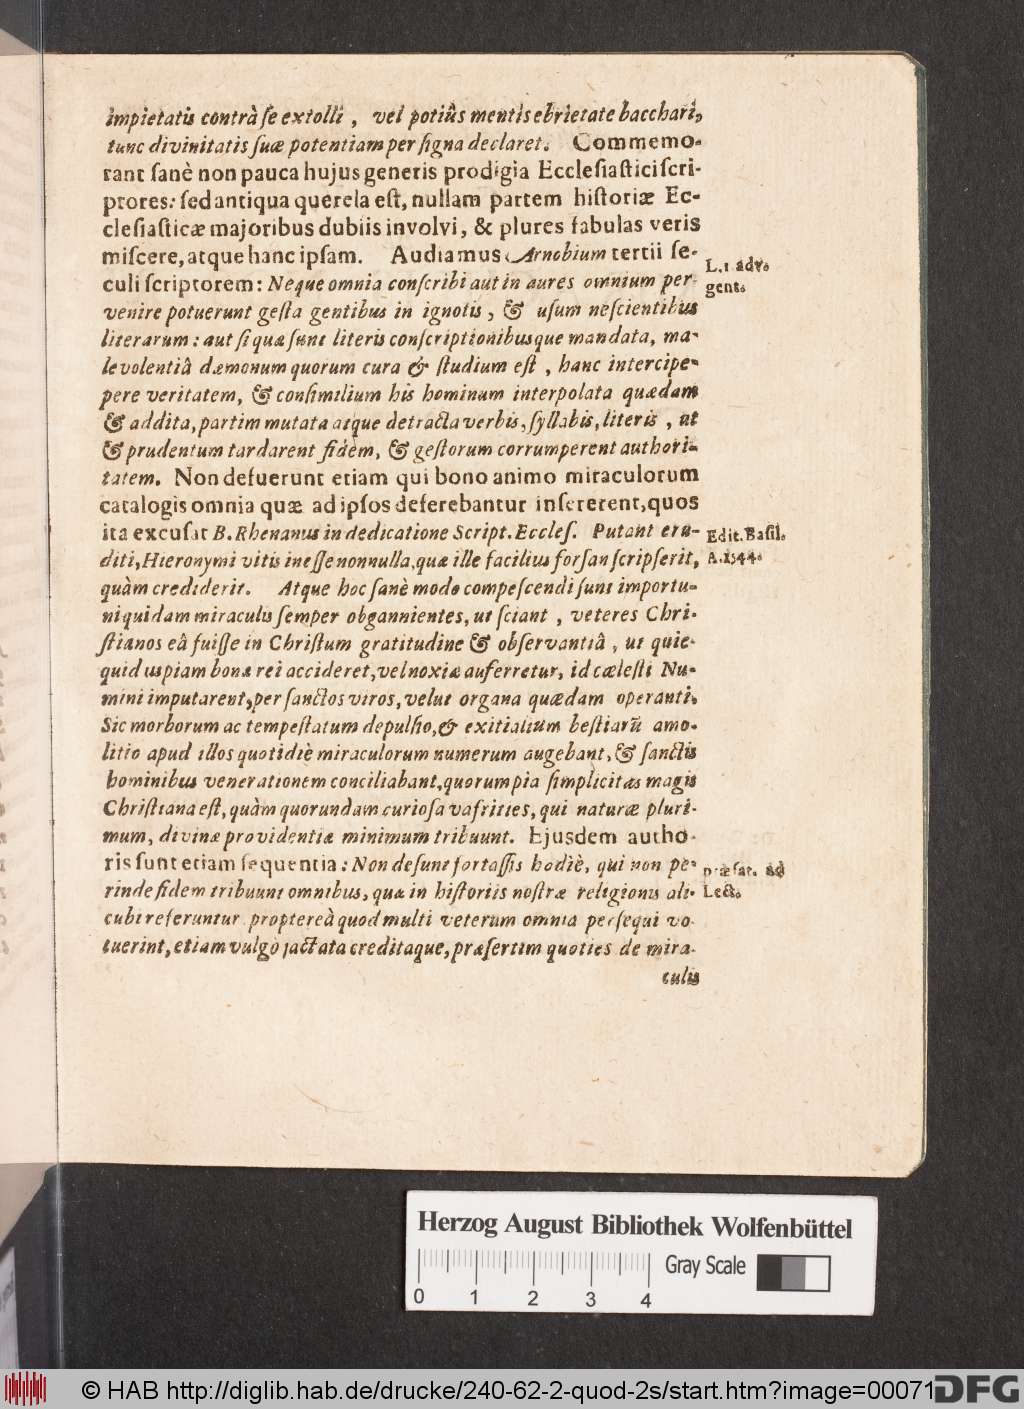 impietatis contrà ſe extolli , vel potiûs mentis ebrietate bacchari,
tunc divinitatis ſuæ potentiam per ſigna declaret. Commemo-
rant ſanè non pauca hujus generis prodigia Eccleſiaſtici ſcri-
ptores: ſed antiqua querela eſt, nullam partem hiſtoriæ Ec-
cleſiaſticæ majoribus dubiis involvi, & plures fabulas veris
miſcere, atque hanc ipſam. Audiamus Arnobium tertii ſe-
culi ſcriptorem: Neque omnia conſcribi aut in aures omnium per-
L.1 adv.
gent.
venire potuerunt geſta gentibus in ignotis , & uſum neſcientibus
literarum: aut ſi quæ ſunt literis conſcriptionibusque mandata, ma-
levolentiâ dæmonum quorum cura & ſtudium eſt , hanc intercipe-
pere veritatem, & conſimilium his hominum interpolata quædam
& addita, partim mutata atque detracta verbis, ſyllabis, literis , ut
& prudentum tardarent fidem, & geſtorum corrumperent authori-
tatem. Non defuerunt etiam qui bono animo miraculorum
catalogis omnia quæ ad ipſos deferebantur inſererent, quos
ita excuſat B. Rhenanus in dedicatione Script. Eccleſ. Putant eru-
Edit. Baſil.
A. 1544.
diti, Hieronymi vitis ineſſe nonnulla, quæ ille facilius forſan ſcripſerit,
quàm crediderit. Atque hoc ſanè modo compeſcendi ſunt importu-
ni quidam miraculis ſemper obgannientes, ut ſciant , veteres Chri-
ſtianos eâ fuiſſe in Chriſtum gratitudine & obſervantiâ , ut quic-
quid uspiam bonæ rei accideret, vel noxiæ auferretur, id cæleſti Nu-
mini imputarent, per ſanctos viros, velut organa quædam operanti.
Sic morborum ac tempeſtatum depulſio, & exitialium beſtiarũ amo-
litio apud illos quotidiè miraculorum numerum augebant, & ſanctis
hominibus venerationem conciliabant, quorum pia ſimplicitas magis
Chriſtiana eſt, quàm quorundam curioſa vafrities, qui naturæ pluri-
mum, divinæ providentiæ minimum tribuunt. Ejusdem autho-
ris ſunt etiam ſequentia: Non deſunt fortaſſis hodiè, qui non pe-
præfat. ad
Lect.
rinde fidem tribuunt omnibus, quæ in hiſtoriis noſtræ religionis ali-
cubi referuntur propterea quod multi veterum omnia perſequi vo-
luerint, etiam vulgo jactata creditaque, præſertim quoties de mira-
culis
Herzog August Bibliothek Wolfenbüttel
Gray Scale
0 1 2 3 4
© HAB http://diglib.hab.de/drucke/240-62-2-quod-2s/start.htm?image=00071
DFG